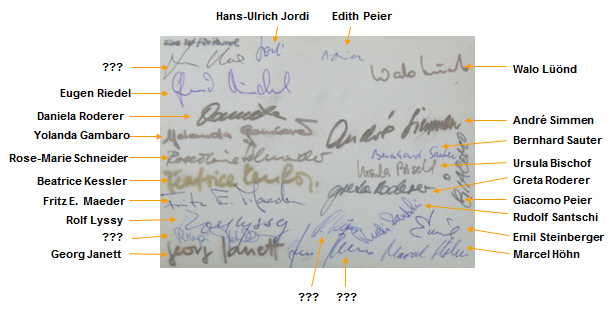 Hans-Ulrich Jordi
Edith Peier
???
Walo Lüönd
Eugen Riedel
Daniela Roderer
André Simmen
Yolanda Gambaro
Bernhard Sauter
Rose-Marie Schneider
Ursula Bischof
Beatrice Kessler
Greta Roderer
Fritz E. Maeder
Giacomo Peier
Rolf Lyssy
Rudolf Santschi
???
Emil Steinberger
Georg Janett
Marcel Höhn
???
???
Jordi
Walo Lüönd
Daniela
André Simmen
Yolanda Gambaro
Bernhard Sauter
Ursula Bischof
Beatrice Kessler
Greta Roderer
Fritz E. Maeder
Rolf Lyssy
Emil
Georg Janett
Marcel Höhn